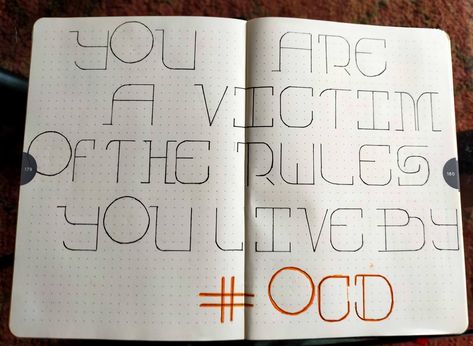 YOU ARE
A VICTIM
OF THE RULES
YOU LIVE BY
#OCD
179
180